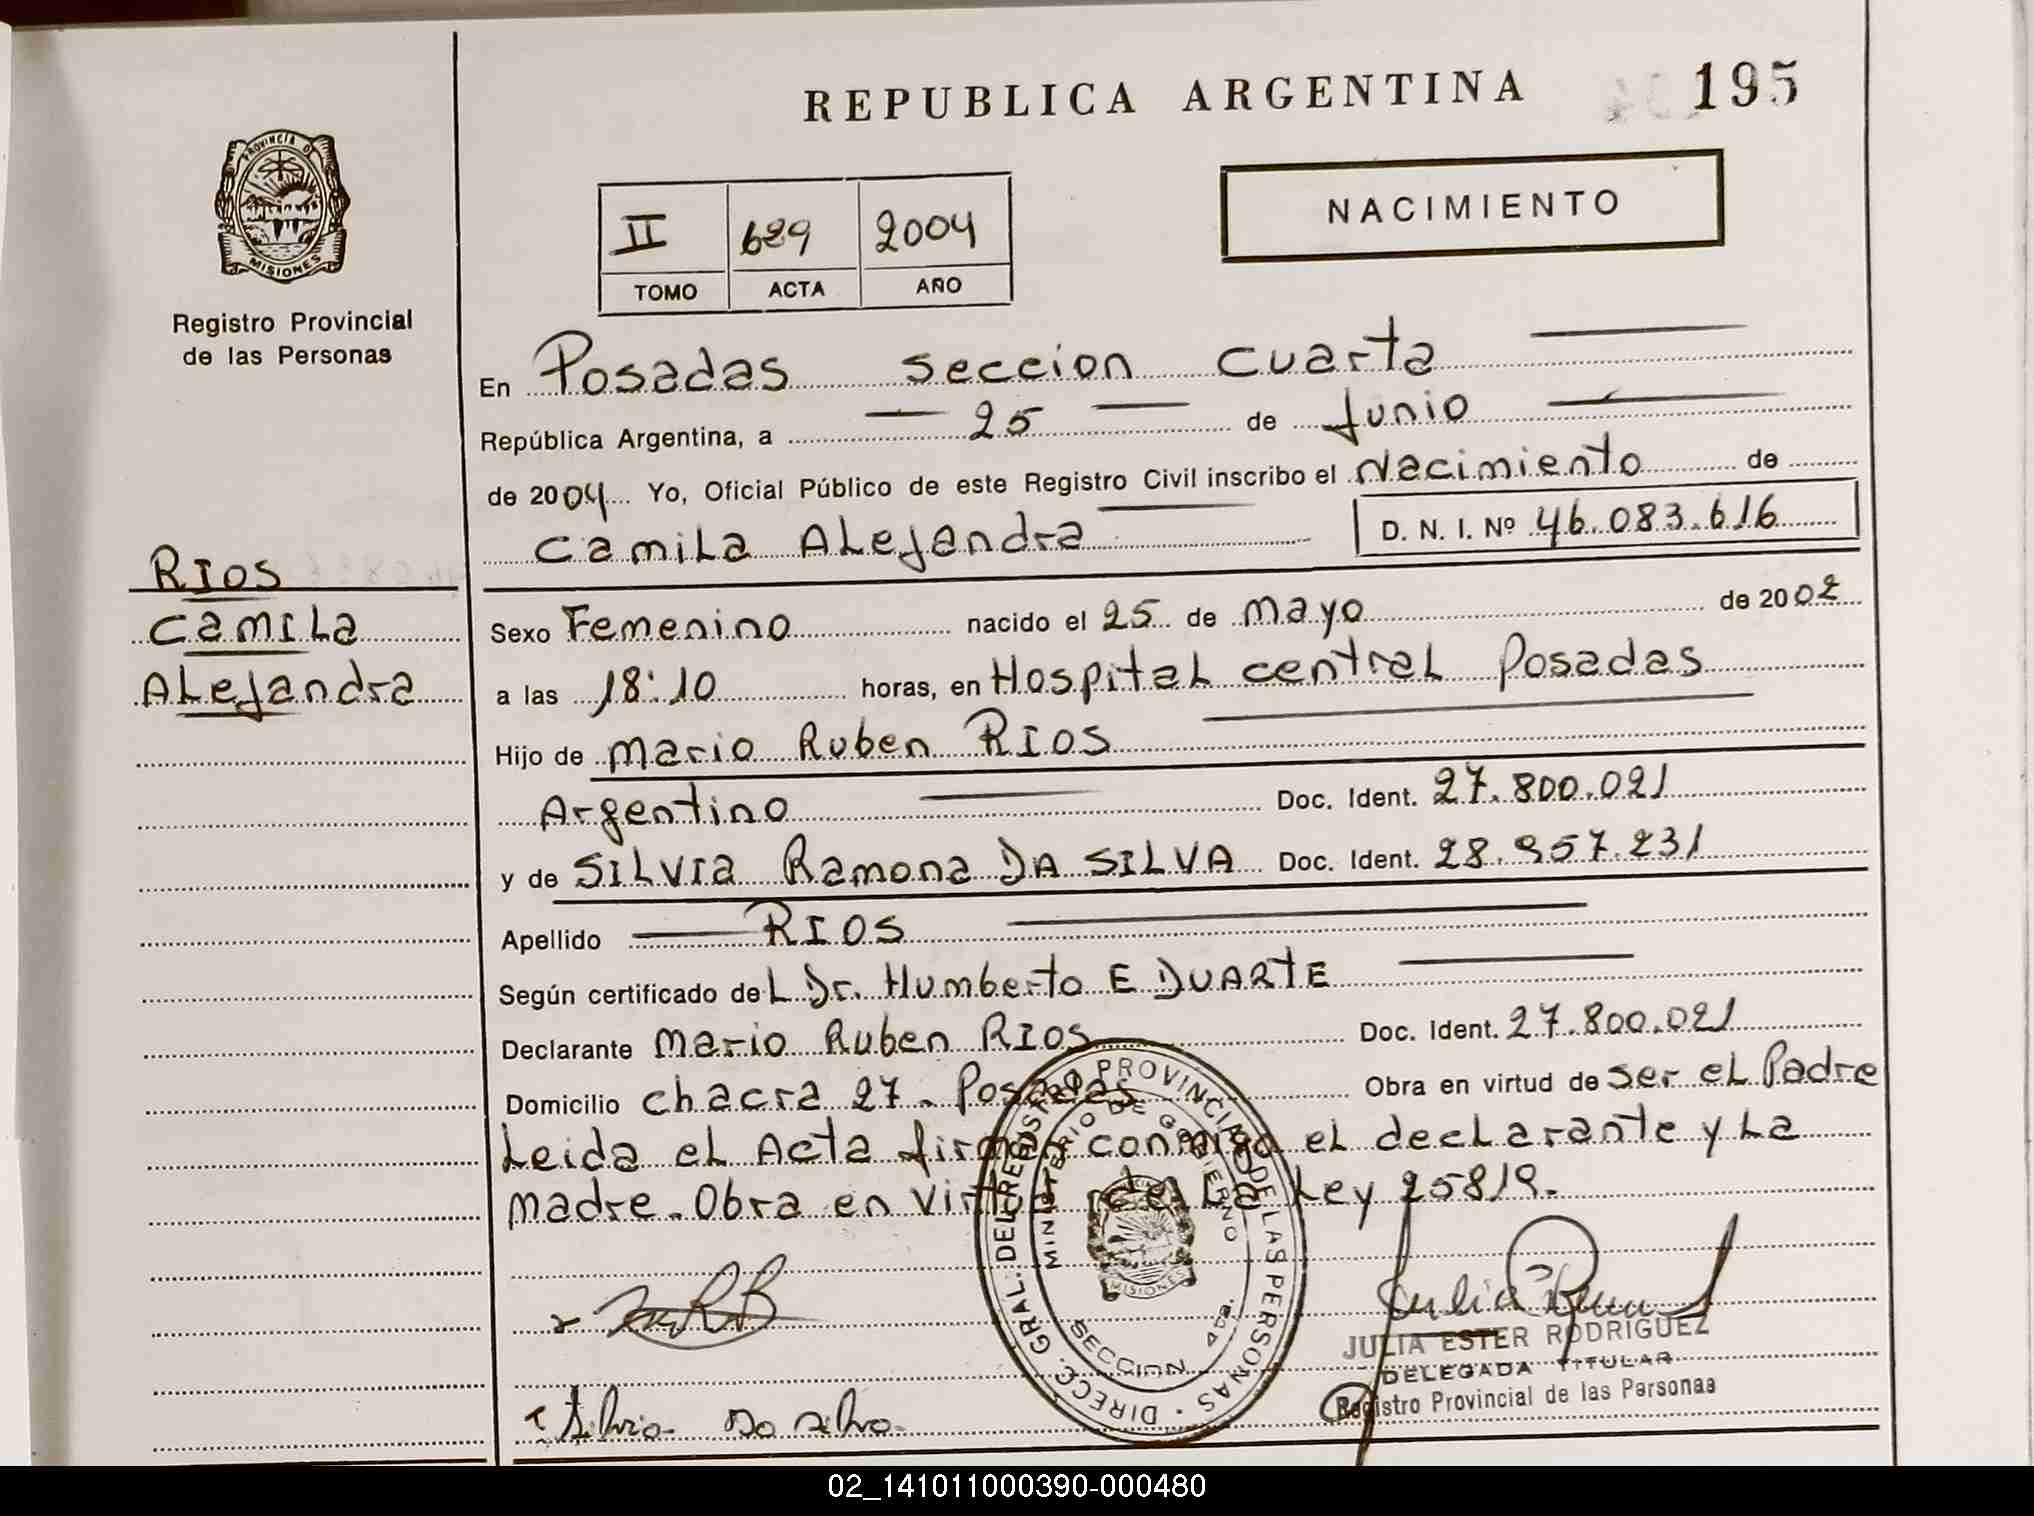 REPUBLICA ARGENTINA
195
PROVINCIA DE
MISIONES
Registro Provincial
de las Personas
II 689 2004
TOMO ACTA AÑO
NACIMIENTO
En Posadas seccion cuarta
República Argentina, a 25 de Junio
de 2004 Yo, Oficial Público de este Registro Civil inscribo el Nacimiento de
Camila Alejandra D. N. I. Nº 46.083.616
RIOS
Camila
Alejandra
Sexo Femenino nacido el 25 de mayo de 2002
a las 18:10 horas, en Hospital central Posadas
Hijo de Mario Ruben RIOS
Argentino Doc. Ident. 27.800.021
y de SILVIA Ramona DA SILVA Doc. Ident. 28.957.231
Apellido RIOS
Según certificado del Dr. Humberto E DUARTE
Declarante Mario Ruben RIOS Doc. Ident. 27.800.021
Domicilio chacra 27. Posadas Obra en virtud de ser el Padre
Leida el Acta firman conmigo el declarante y La
madre. Obra en virtud de La Ley 25819.
DIRECC. GRAL. DEL REGISTRO PROVINCIAL DE LAS PERSONAS
MINISTERIO DE GOBIERNO
MISIONES
SECCION 4ta.
Silvia Da Silva
JULIA ESTER RODRIGUEZ
DELEGADA TITULAR
Registro Provincial de las Personas
02_141011000390-000480